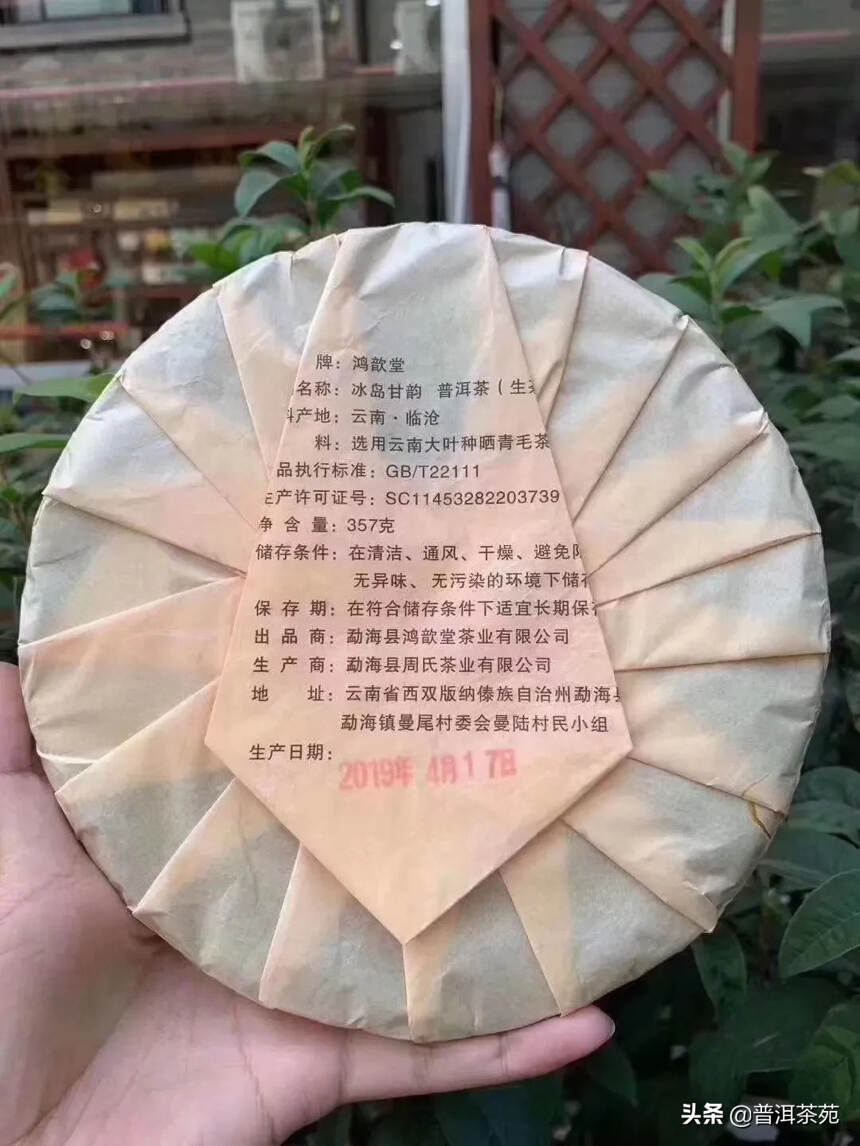 牌：鸿歆堂
名称：冰岛甘韵 普洱茶（生
产地：云南·临沧
料：选用云南大叶种晒青毛茶
品执行标准：GB/T22111
生产许可证号：SC11453282203739
净含量：357克
储存条件：在清洁、通风、干燥、避免
无异味、无污染的环境下储存
保存期：在符合储存条件下适宜长期保存
出品商：勐海县鸿歆堂茶业有限公司
生产商：勐海县周氏茶业有限公司
地址：云南省西双版纳傣族自治州勐海县
勐海镇曼尾村委会曼陆村民小组
生产日期：
2019年 4月17日
头条 @普洱茶苑